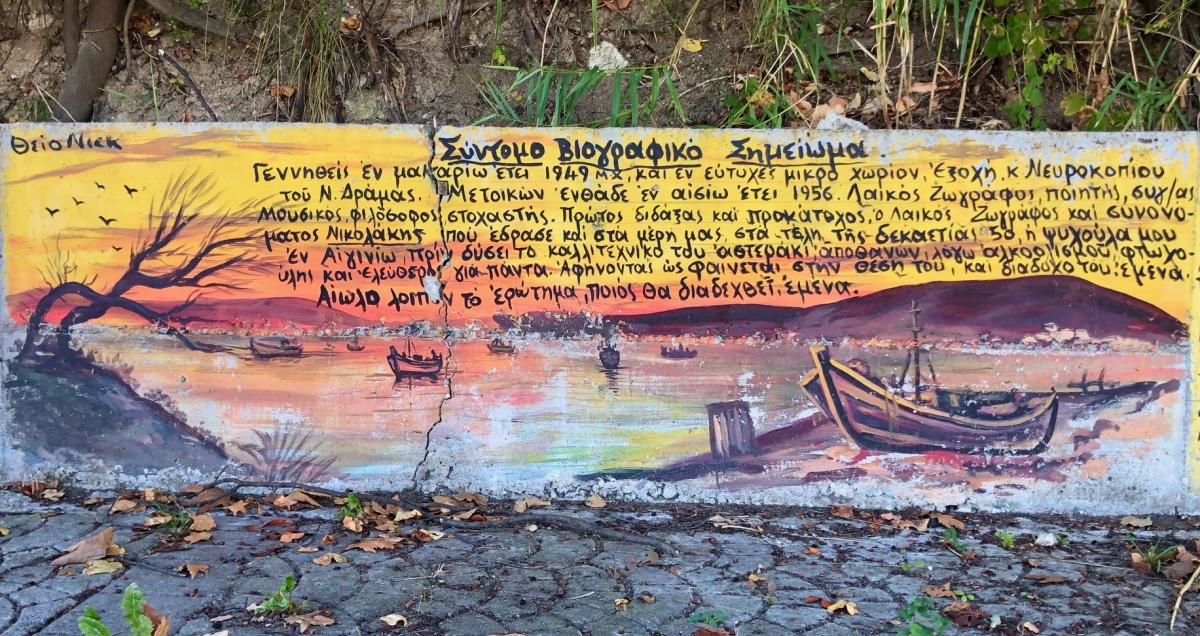 Θείο Νίck
Σύντομο Βιογραφικό Σημείωμα
Γεννηθείς ἐν μακαρίω ἔτει 1949 μχ, και ἐν εὐτυχες μικρό χωρίον, Ἐξοχή, κ. Νευροκοπίου
τοῦ Ν. Δράμας. Μετοικών ἐνθάδε ἐν αἰσίω ἔτει 1956. Λαικός Ζωγράφος, ποιητής, συχ/ας
Μουσικός, φιλόσοφος, στοχαστής. Πρώτος διδάξας και προκάτοχος, ὁ Λαικός Ζωγράφος και συνονό-
ματος Νικολάκης που ἐδρασε και στα μέρη μας, στα τέλη της δεκαετίας 50 ἡ ψυχούλα μου
ἐν Αἰγινίω, πρίν δύσει το καλλιτεχνικό του ἀστεράκι, ἀποθανών, λόγω ἀλκοολισμού, φτωχο-
ύλης και ἐλεύθερος για πάντα. Αφήνοντας ὡς φαίνεται, στην θέση του, και διάδοχο του, ἐμένα.
Αἰωλο λοιπόν το ἐρώτημα, ποιός θα διαδεχθεῖ, ἐμένα.